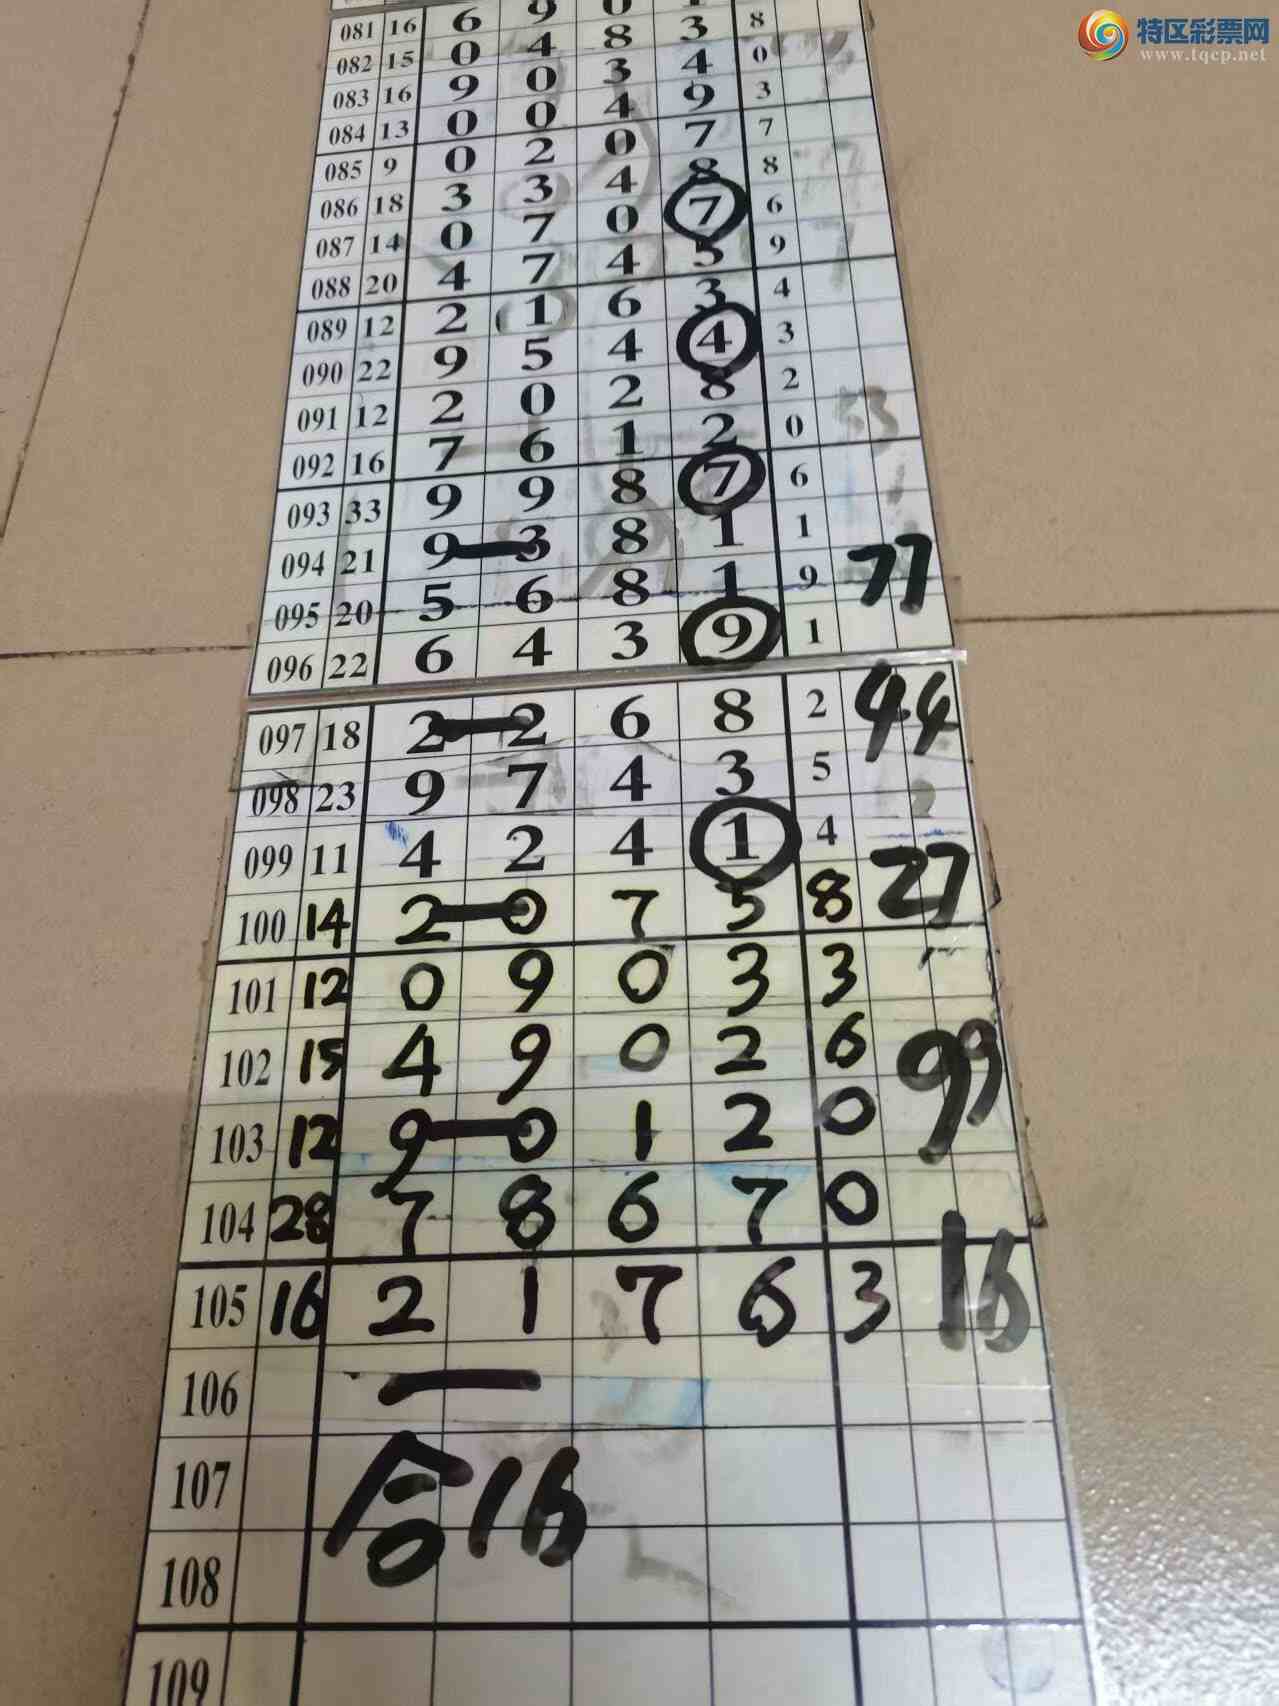 特区彩票网
www.tqcp.net
081 16 6 9 0 1
082 15 0 4 8 3 8
083 16 9 0 3 4 0
084 13 0 0 4 9 3
085 9 0 2 0 7 7
086 18 3 3 4 8 8
087 14 0 7 0 7 6
088 20 4 7 4 5 9
089 12 2 1 6 3 4
090 22 9 5 4 4 3
091 12 2 0 2 8 2
092 16 7 6 1 2 0
093 33 9 9 8 7 6
094 21 9 3 8 1 1
095 20 5 6 8 1 9 77
096 22 6 4 3 9 1
097 18 2 2 6 8 2 44
098 23 9 7 4 3 5
099 11 4 2 4 1 4
100 14 2 0 7 5 8 27
101 12 0 9 0 3 3
102 15 4 9 0 2 6 99
103 12 9 0 1 2 0
104 28 7 8 6 7 0
105 16 2 1 7 6 3 16
106
107 合16
108
109